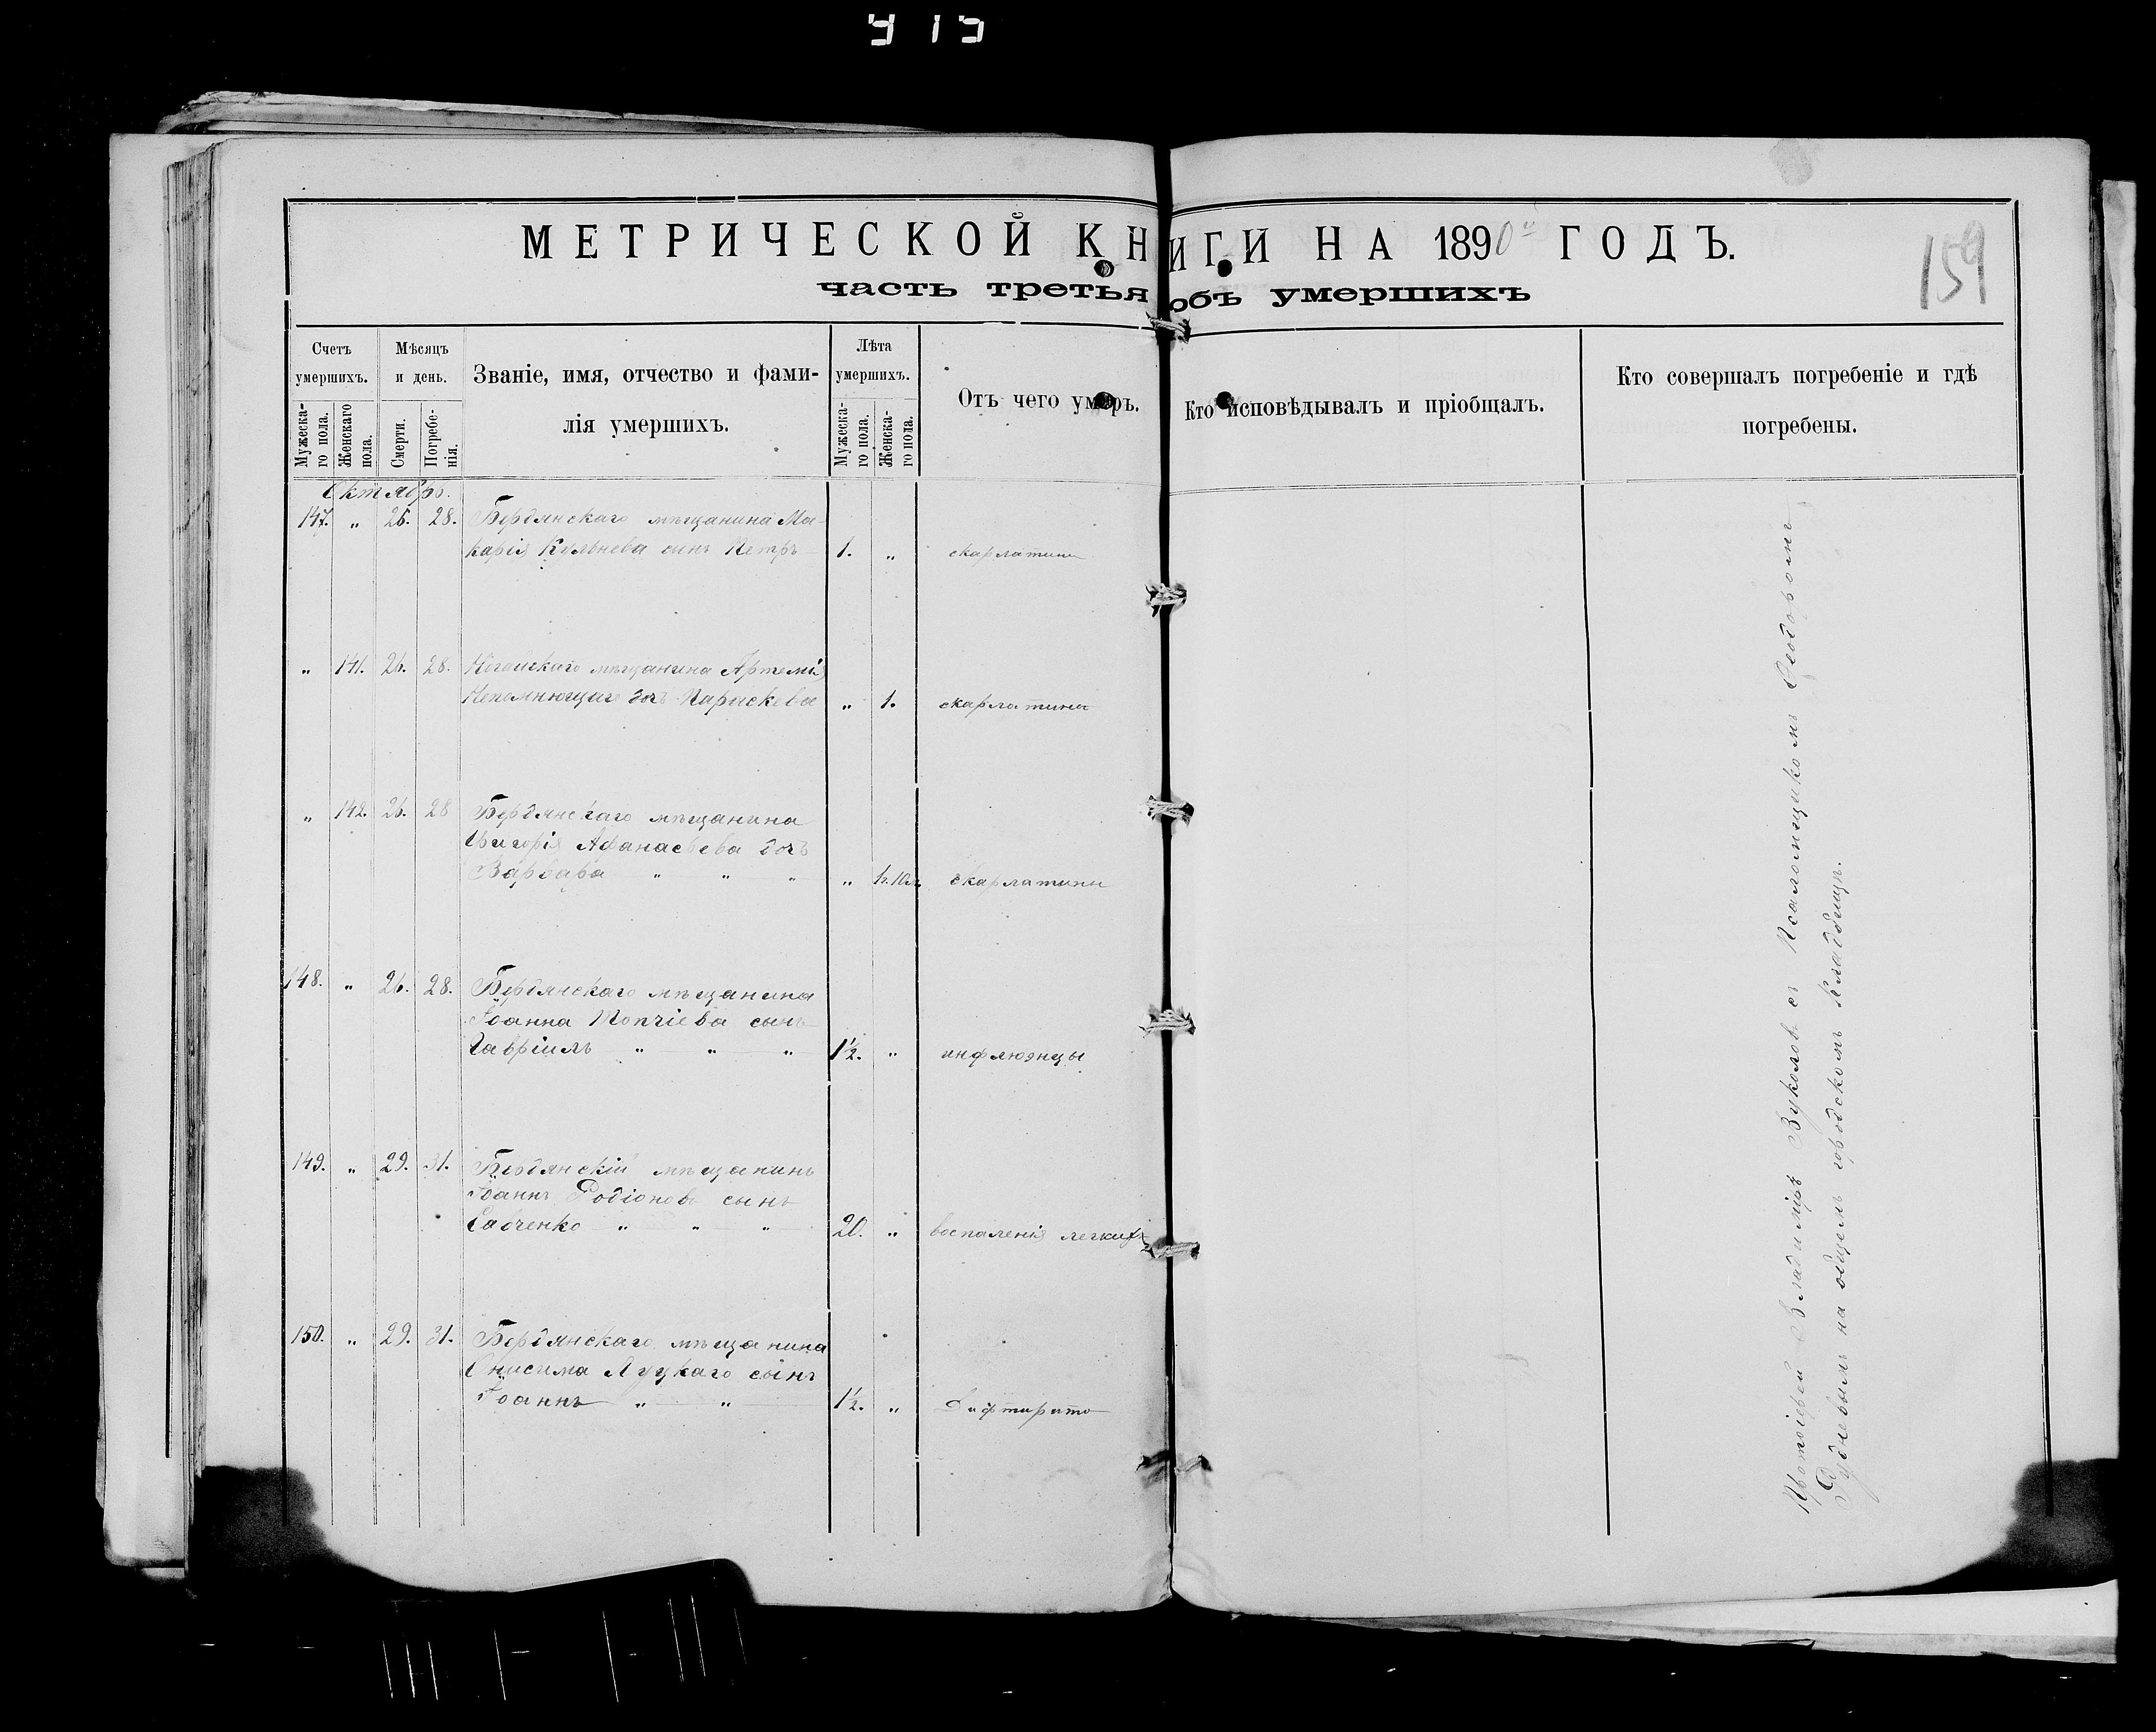 915
МЕТРИЧЕСКОЙ КНИГИ НА 1890й ГОДЪ.
часть третья объ умершихъ
159
Счетъ умершихъ.
Мужескаго пола.
Женскаго пола.
Мѣсяцъ и день.
Смерти.
Погребенія.
Званіе, имя, отчество и фами-
лія умершихъ.
Лѣта умершихъ.
Мужескаго пола.
Женскаго пола.
Отъ чего умеръ.
Кто исповѣдывалъ и пріобщалъ.
Кто совершалъ погребеніе и гдѣ
погребены.
Октябрь.
147. „ 26. 28. Бердянскаго мѣщанина Ма-
карія Кульнева сынъ Петръ 1. „ скарлатины
„ 141. 26. 28. Ногайскаго мѣщанина Артемія
Непомнющаго дочь Параскева „ 1. скарлатины
„ 142. 26. 28 Бердянскаго мѣщанина
Григорія Афанасьева дочь
Варвара „ „ „ „ 1г.10м. скарлатины
148. „ 26. 28. Бердянскаго мѣщанина
Іоанна Топчіева сынъ
Гавріилъ „ „ „ 1½. „ инфлюэнцы
149. „ 29. 31. Бердянскій мѣщанинъ
Іоаннъ Родіоновъ сынъ
Савченко „ „ „ 20. „ воспаленія легкихъ
150. „ 29. 31. Бердянскаго мѣщанина
Онисима Луцкаго сынъ
Іоаннъ „ „ 1½. „ Дифтерита
Протоіерей Владиміръ Вуколовъ съ Псаломщикомъ Ѳеодоромъ
Рудневымъ на общемъ городскомъ кладбищѣ.